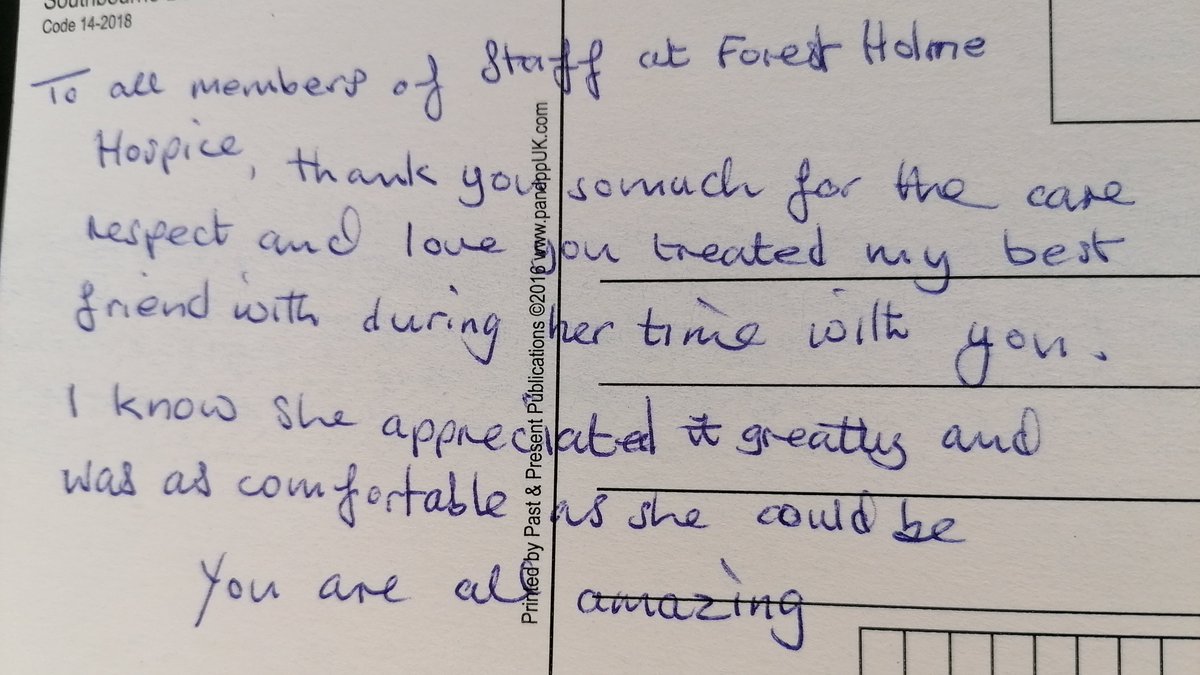 Code 14-2018
To all members of Staff at Forest Holme
Hospice, thank you somuch for the care
respect and love you treated my best
friend with during her time with you.
I know she appreciated it greatly and
was as comfortable as she could be
You are all amazing
Printed by Past & Present Publications ©2016 www.pandppUK.com